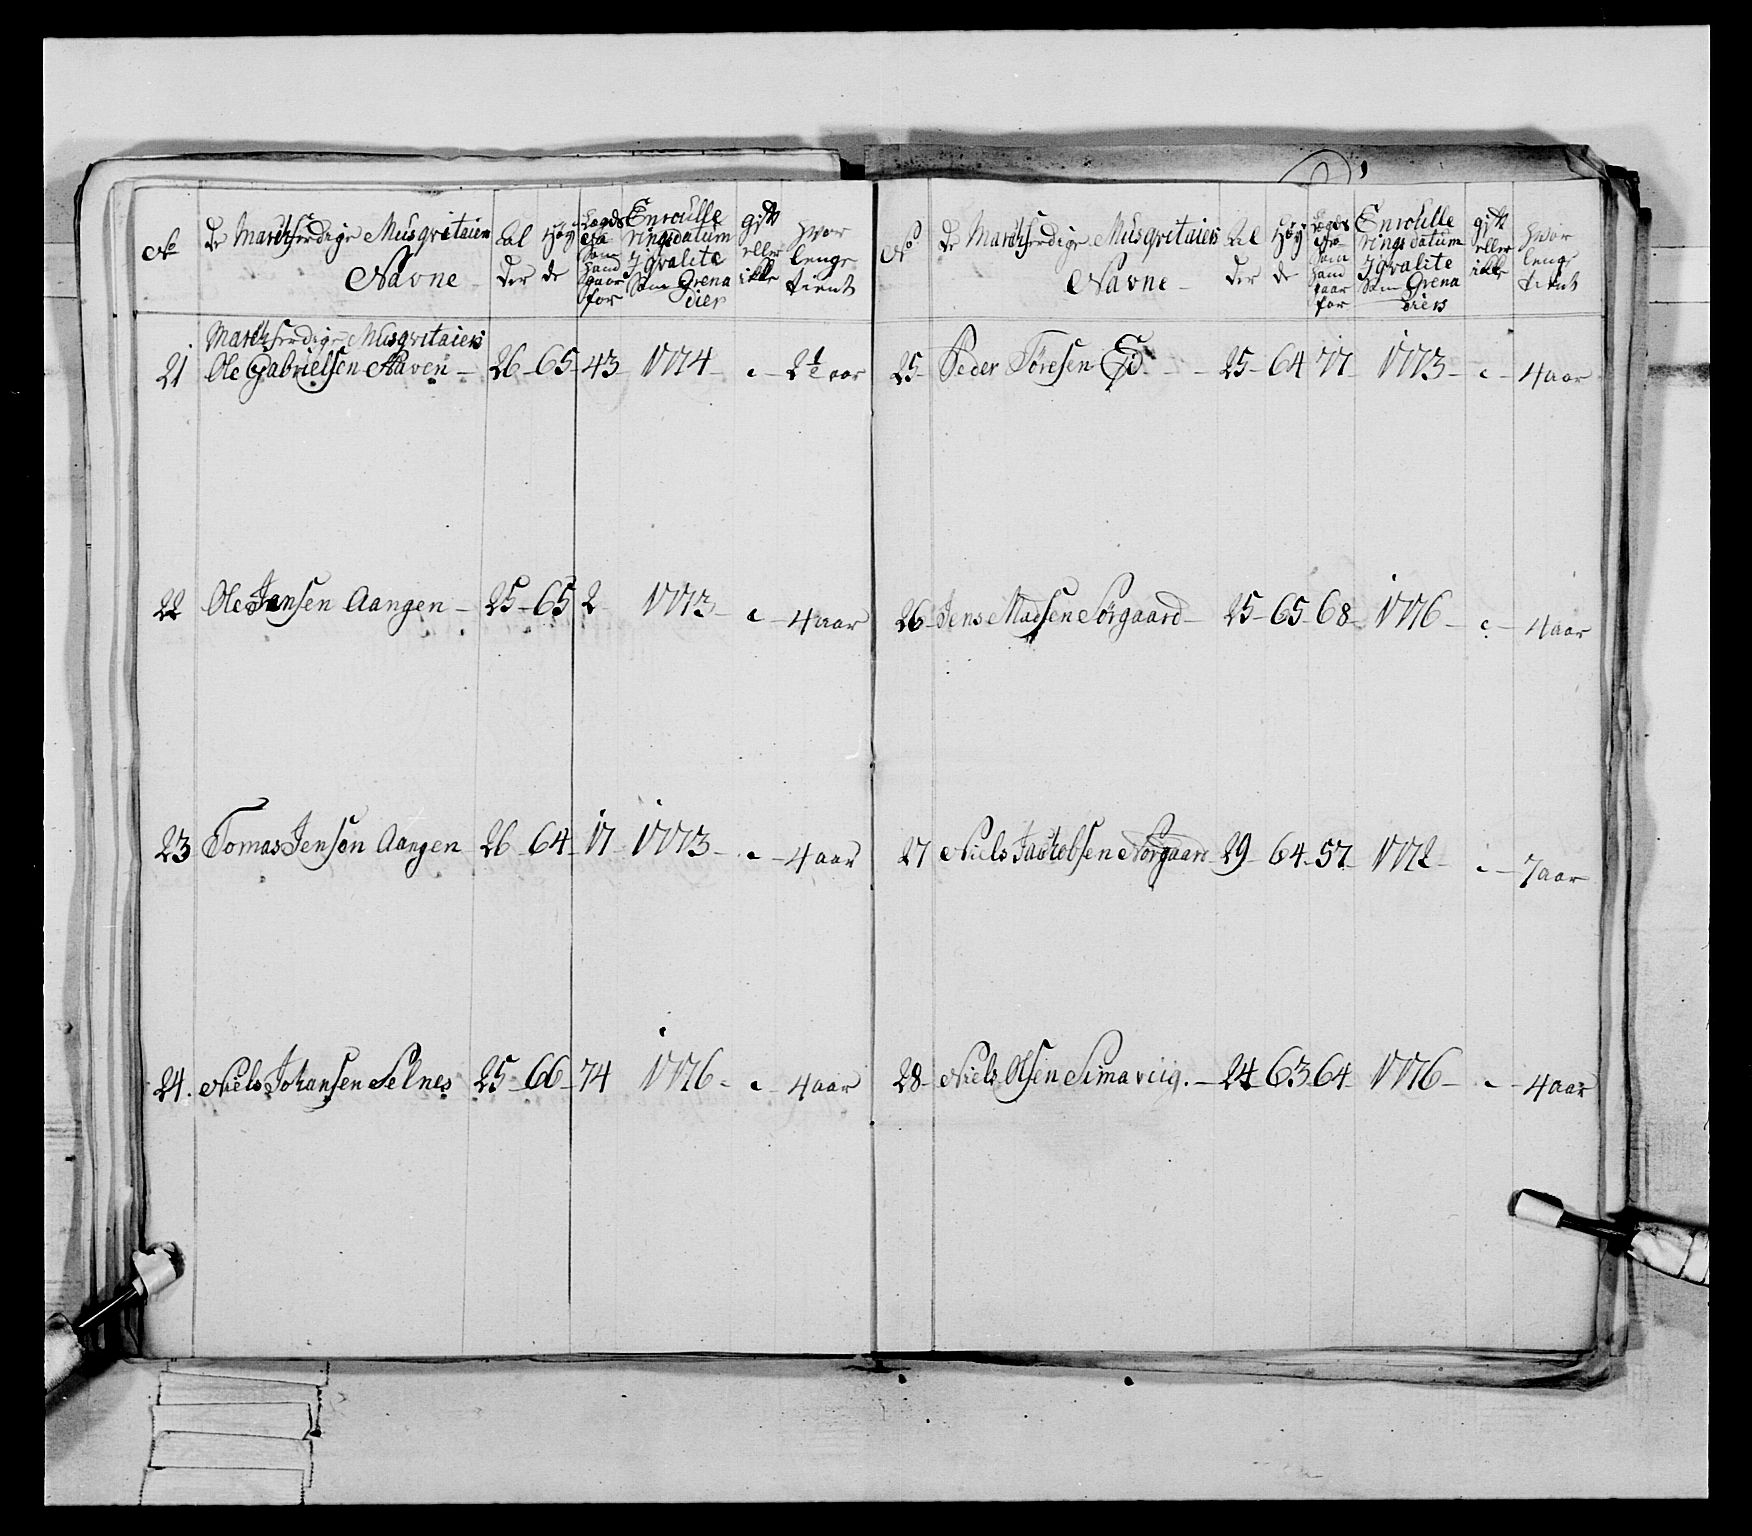 No
De Marchferdige Musqvetaiers
Navne
Al
der
Høy
de
Lægds
No
som
hand
staar
for
Enroulle
rings datum
I qvalite
som Grena
dier
gift
eller
ikke
hvor
lenge
tient
Marchferdige Musqvetaiers
21 Ole Gabrielsen Haven - 26 - 65 - 43 1774 - - 2½ aar
22 Ole Jensen Aangen - 25 - 65 2 1773 - - 4 aar
23 Tomas Jensen Aangen 26 - 64 - 17 - 1773 - - 4 aar
24. Niels Johansen Selnes 25 - 66 - 74 1776 - - 4 aar
No
De Marchferdige Musqvetaiers
Navne
Al
der
Høy
de
Lægds
No
som
hand
staar
for
Enroulle
rings datum
I qvalite
som Grena
diers
gift
eller
ikke
hvor
lenge
tient
25 - Peder Toresen Eid - - 25 - 64 77 - 1773 - - 4 aar
26 - Jens Madsen Sørgaard - 25 - 65 - 68 - 1776 - - 4 aar
27 Niels Jackobsen Norgaard 29 - 64 - 57 - 1772 - - 7 aar
28 - Niels Olsen Simaviig. - 24 - 63 64 - 1776 - - 4 aar